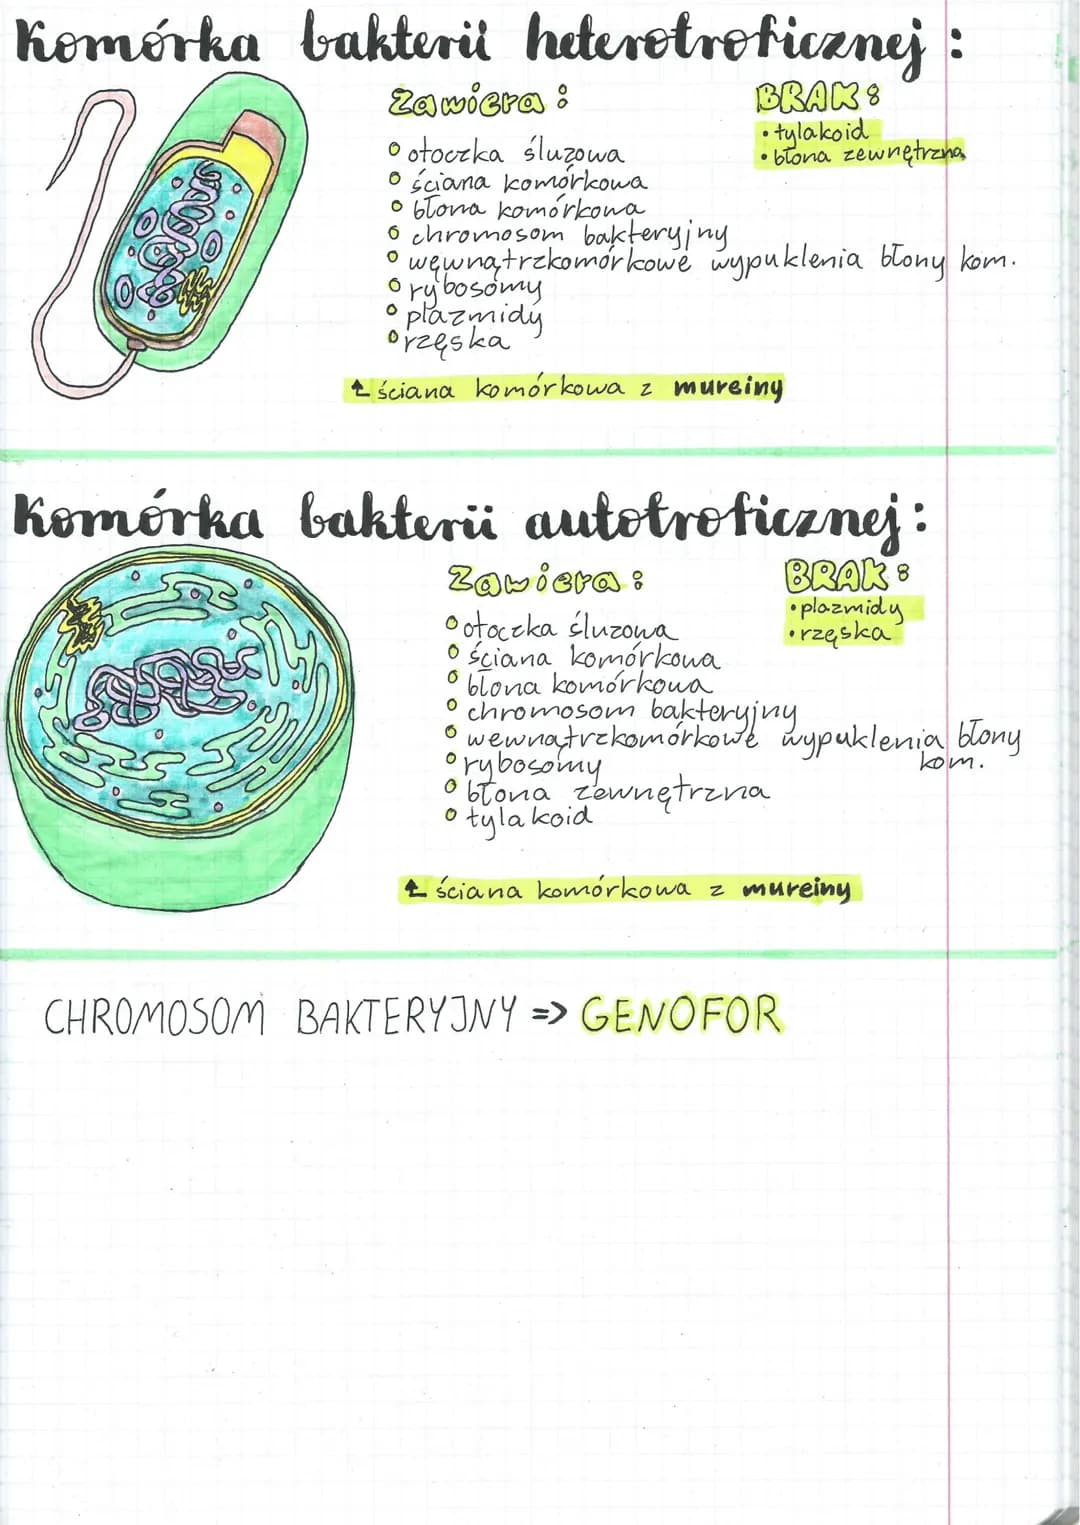 Komórka bakterii heterotroficznej:
Zawiera:
BRAK:
• tylakoid
• błona zewnętrzna
° otoczka śluzowa
° ściana komórkowa
° błona komórkowa
° chromosom bakteryjny
° wewnątrzkomórkowe wypuklenia błony kom.
° rybosomy
° plazmidy
° rzęska
↥ ściana komórkowa z mureiny
Komórka bakterii autotroficznej:
Zawiera:
BRAK:
• plazmidy
• rzęska
° otoczka śluzowa
° ściana komórkowa
° błona komórkowa
° chromosom bakteryjny
° wewnątrzkomórkowe wypuklenia błony
kom.
° rybosomy
° błona zewnętrzna
° tylakoid
↥ ściana komórkowa z mureiny
CHROMOSOM BAKTERYJNY => GENOFOR